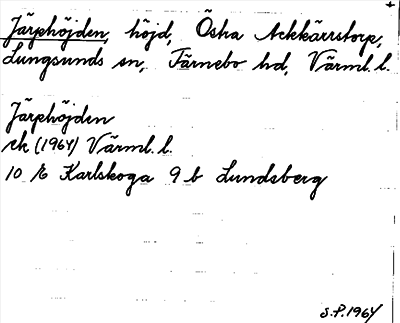 Järphöjden, höjd, Östra Ackkärrstorp,
Lungsunds sn, Färnebo hd, Värml. l.
Järphöjden
rk (1964) Värml. l.
10 E Karlskoga 9 b Lundsberg
S.P. 1964